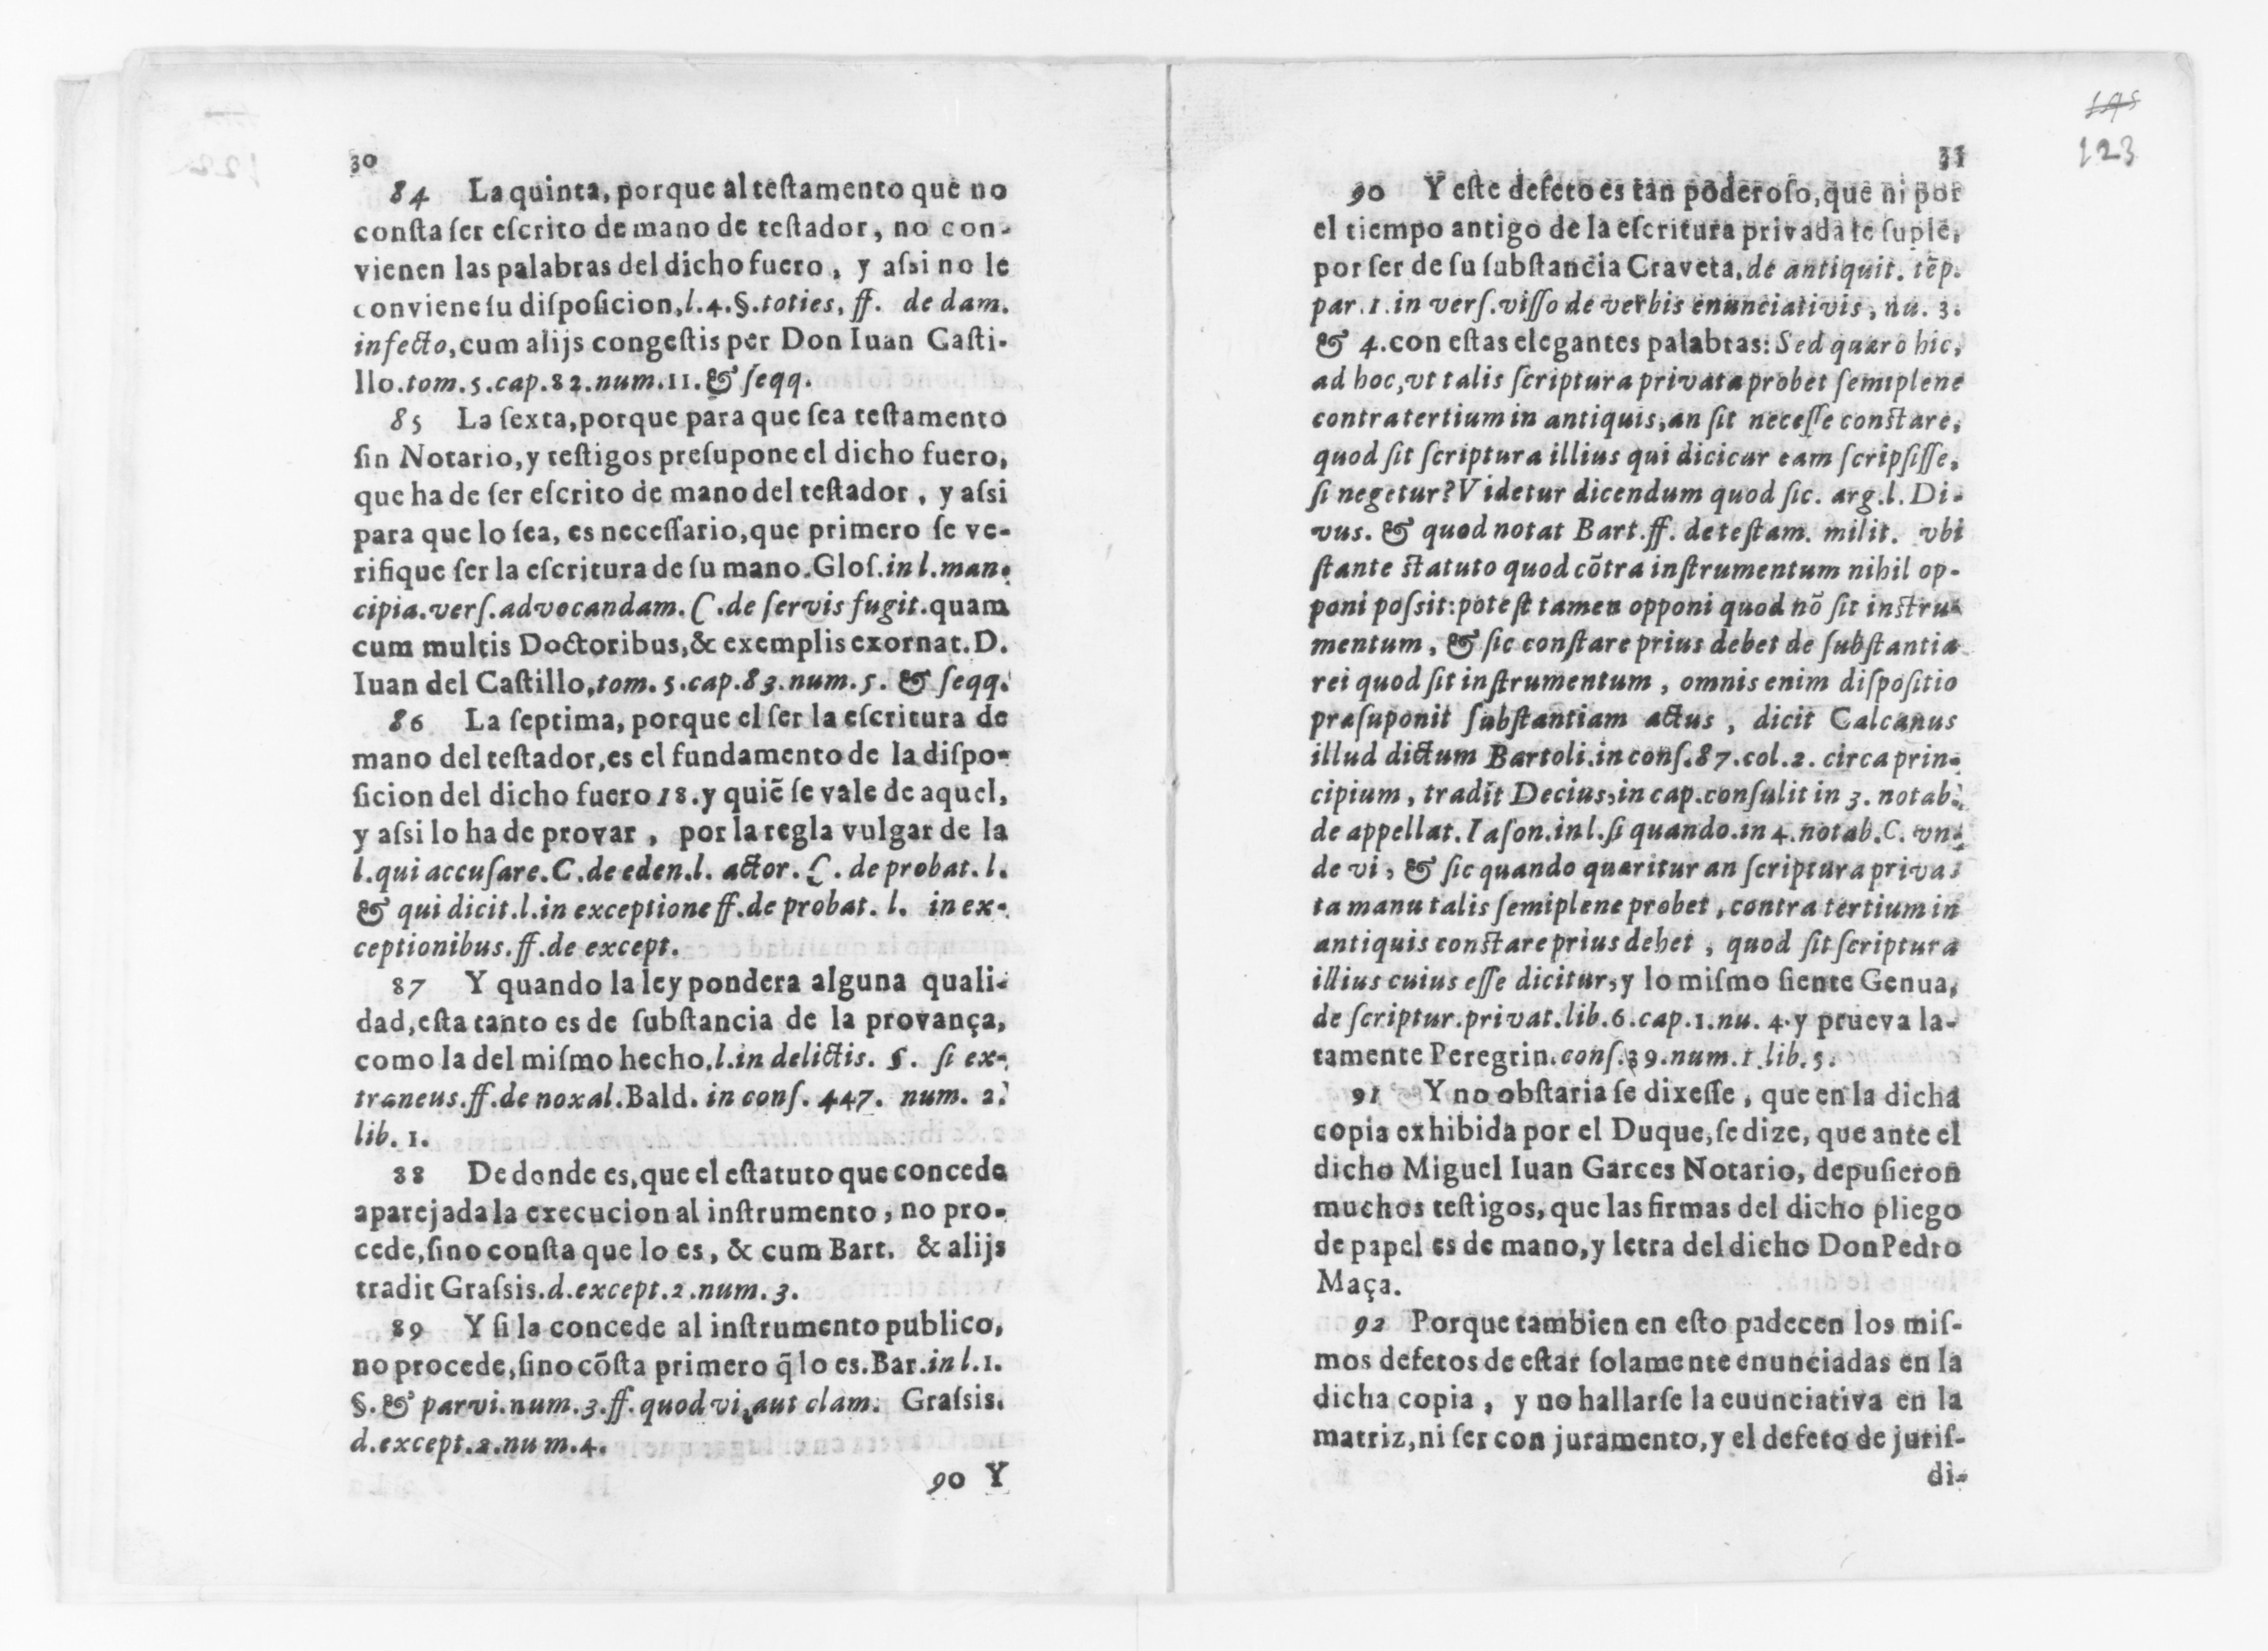 30
84 La quinta, porque al testamento que no
consta ser escrito de mano de testador, no con-
vienen las palabras del dicho fuero, y assi no le
conviene su disposicion, l.4.§.toties, ff. de dam.
infecto, cum alijs congestis per Don Iuan Casti-
llo.tom.5.cap.82.num.11.& seqq.
85 La sexta, porque para que sea testamento
sin Notario, y testigos presupone el dicho fuero,
que ha de ser escrito de mano del testador, y assi
para que lo sea, es necessario, que primero se ve-
rifique ser la escritura de su mano. Glos.in l.man-
cipia.vers.advocandam.C.de servis fugit.quam
cum multis Doctoribus, & exemplis exornat. D.
Iuan del Castillo, tom.5.cap.83.num.5. & seqq.
86 La septima, porque el ser la escritura de
mano del testador, es el fundamento de la dispo-
sicion del dicho fuero 18.y quiē se vale de aquel,
y assi lo ha de provar, por la regla vulgar de la
l.qui accusare.C.de eden.l. actor.C.de probat.l.
& qui dicit.l.in exceptione ff.de probat. l. in ex-
ceptionibus.ff.de except.
87 Y quando la ley pondera alguna quali-
dad, esta tanto es de substancia de la provança,
como la del mismo hecho, l.in delictis. §. si ex-
traneus.ff.de noxal.Bald. in cons. 447. num. 2.
lib. 1.
88 De donde es, que el estatuto que concede
aparejada la execucion al instrumento, no pro-
cede, sino consta que lo es, & cum Bart. & alijs
tradit Grassis.d.except.2.num.3.
89 Y si la concede al instrumento publico,
no procede, sino cōsta primero q̄ lo es.Bar.in l.1.
§.& parvi.num.3.ff.quod vi, aut clam. Grassis.
d.except.2.num.4.
90 Y
145
123
31
90 Y este defeto es tan poderoso, que ni por
el tiempo antigo de la escritura privada le suple,
por ser de su substancia Craveta, de antiquit. tēp.
par.1.in vers.visso de verbis enunciativis, nu. 3.
& 4.con estas elegantes palabras: Sed quæro hic,
ad hoc, vt talis scriptura privata probet semiplene
contra tertium in antiquis, an sit necesse constare,
quod sit scriptura illius qui dicicur eam scripsisse,
si negetur? Videtur dicendum quod sic. arg.l. Di-
vus. & quod notat Bart.ff.de testam. milit. vbi
stante statuto quod cōtra instrumentum nihil op-
poni possit: potest tamen opponi quod nō sit instru-
mentum, & sic constare prius debet de substantia
rei quod sit instrumentum, omnis enim dispositio
præsuponit substantiam actus, dicit Calcanus
illud dictum Bartoli.in cons.87.col.2. circa prin-
cipium, tradit Decius, in cap.consulit in 3. notab.
de appellat. Iason.in l.si quando.in 4.notab.C. vn-
de vi, & sic quando quæritur an scriptura priva-
ta manu talis semiplene probet, contra tertium in
antiquis constare prius debet, quod sit scriptura
illius cuius esse dicitur, y lo mismo siente Genua,
de scriptur.privat.lib.6.cap.1.nu. 4.y prueva la-
tamente Peregrin.cons.39.num.1.lib.5.
91 Y no obstaria se dixesse, que en la dicha
copia exhibida por el Duque, se dize, que ante el
dicho Miguel Iuan Garces Notario, depusieron
muchos testigos, que las firmas del dicho pliego
de papel es de mano, y letra del dicho Don Pedro
Maça.
92 Porque tambien en esto padecen los mis-
mos defetos de estar solamente enunciadas en la
dicha copia, y no hallarse la euunciativa en la
matriz, ni ser con juramento, y el defeto de juris-
di-